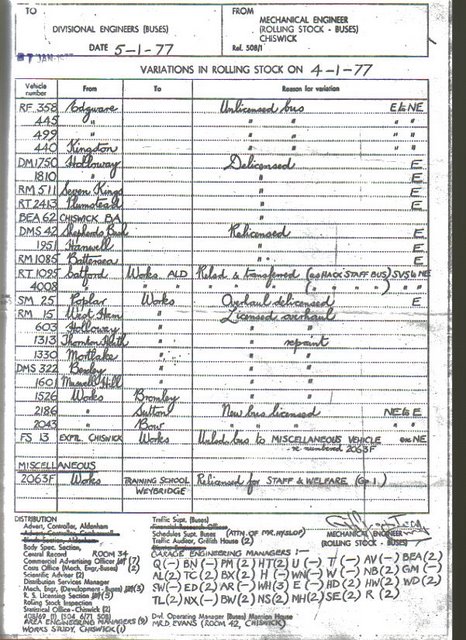 TO
DIVISIONAL ENGINEERS (BUSES)
DATE 5-1-77
FROM
MECHANICAL ENGINEER
(ROLLING STOCK - BUSES)
CHISWICK
Ref. 508/1
VARIATIONS IN ROLLING STOCK ON 4-1-77
Vehicle number From To Reason for variation
RF 358 Edgware Unlicensed bus E to NE
445 " " " " "
499 " " " " "
440 Kingston " " " "
DM1750 Holloway Delicensed E
1810 " " E
RM 511 Seven Kings " E
RT 2413 Plumstead " E
BEA 62 CHISWICK BA "
DMS 42 Shepherds Bush Relicensed E
1951 Hanwell " E
RM 1085 Battersea " E
RT 1095 Catford Works ALD Relsd & transferred (as HACK STAFF BUS) SVS to NE
4008 " " " " " ( " " " ) " "
SM 25 Poplar Works Overhaul delicensed E
RM 15 West Ham " Licensed overhaul
603 Holloway " " "
1313 Thornton Heath " " repaint
1330 Mortlake " " "
DMS 322 Bexley " " "
1601 Muswell Hill " " "
1526 Works Bromley "
2186 " Sutton New bus licensed NE to E
2043 " Bow " " " "
FS 13 EXPTL CHISWICK Works Unlsd bus to MISCELLANEOUS VEHICLE NE
- re numbered 2063F
MISCELLANEOUS
2063F Works TRAINING SCHOOL WEYBRIDGE Relicensed for STAFF & WELFARE (Gp 1.)
DISTRIBUTION
Advert, Controller, Aldenham
Body Spec. Section,
Central Section, ROOM 34
Commercial Advertising Officer
Costs Office (Mach. Engr-Buses)
Scientific Adviser (2)
Distribution Services Manager
Mach, Engr, (Development - Buses)
R. S. Licensing Section
Rolling Stock Inspection
Statistical Office - Chiswick (2)
AREA ENGINEERING MANAGERS (9)
WORKS STUDY, CHISWICK (1)
Traffic Supt. (Buses)
Schedules Supt. Buses (ATTN. OF MR. HYSLOP)
Traffic Auditor, Griffith House (2)
MECHANICAL ENGINEER
(ROLLING STOCK - BUSES)
GARAGE ENGINEERING MANAGERS :-
Q (-) BN (-) PM (2) HT(2) U (-) T (-) AV (-) BEA (2)
AL(2) TC (2) BX (2) H (-) WN (-) W (-) NB (2) GM (-)
SW (-) ED(2) AR (-) WH (3) E (-) BD (2) HW (2) WD (2)
TL(2) NX (-) BW(2) NS (2) NH(2) SE(2) R (2)
Dvl. Operating Manager (Buses)
MR D. EVANS (ROOM 42, CHISWICK)